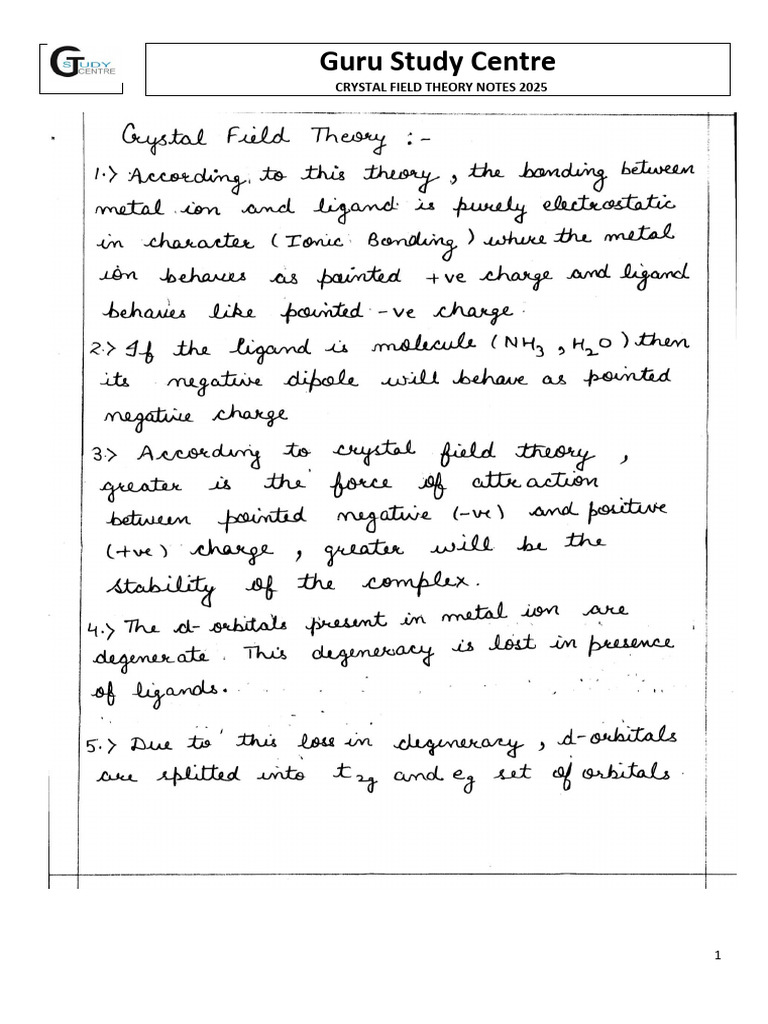 GT STUDY CENTRE
Guru Study Centre
CRYSTAL FIELD THEORY NOTES 2025
Crystal Field Theory :-
1.> According to this theory, the bonding between
metal ion and ligand is purely electrostatic
in character (Ionic Bonding) where the metal
ion behaves as pointed +ve charge and ligand
behaves like pointed -ve charge.
2.> If the ligand is molecule (NH₃, H₂O) then
its negative dipole will behave as pointed
negative charge
3.> According to crystal field theory,
greater is the force of attraction
between pointed negative (-ve) and positive
(+ve) charge, greater will be the
stability of the complex.
4.> The d-orbitals present in metal ion are
degenerate. This degeneracy is lost in presence
of ligands.
5.> Due to this loss in degeneracy, d-orbitals
are splitted into t₂g and eg set of orbitals.
1